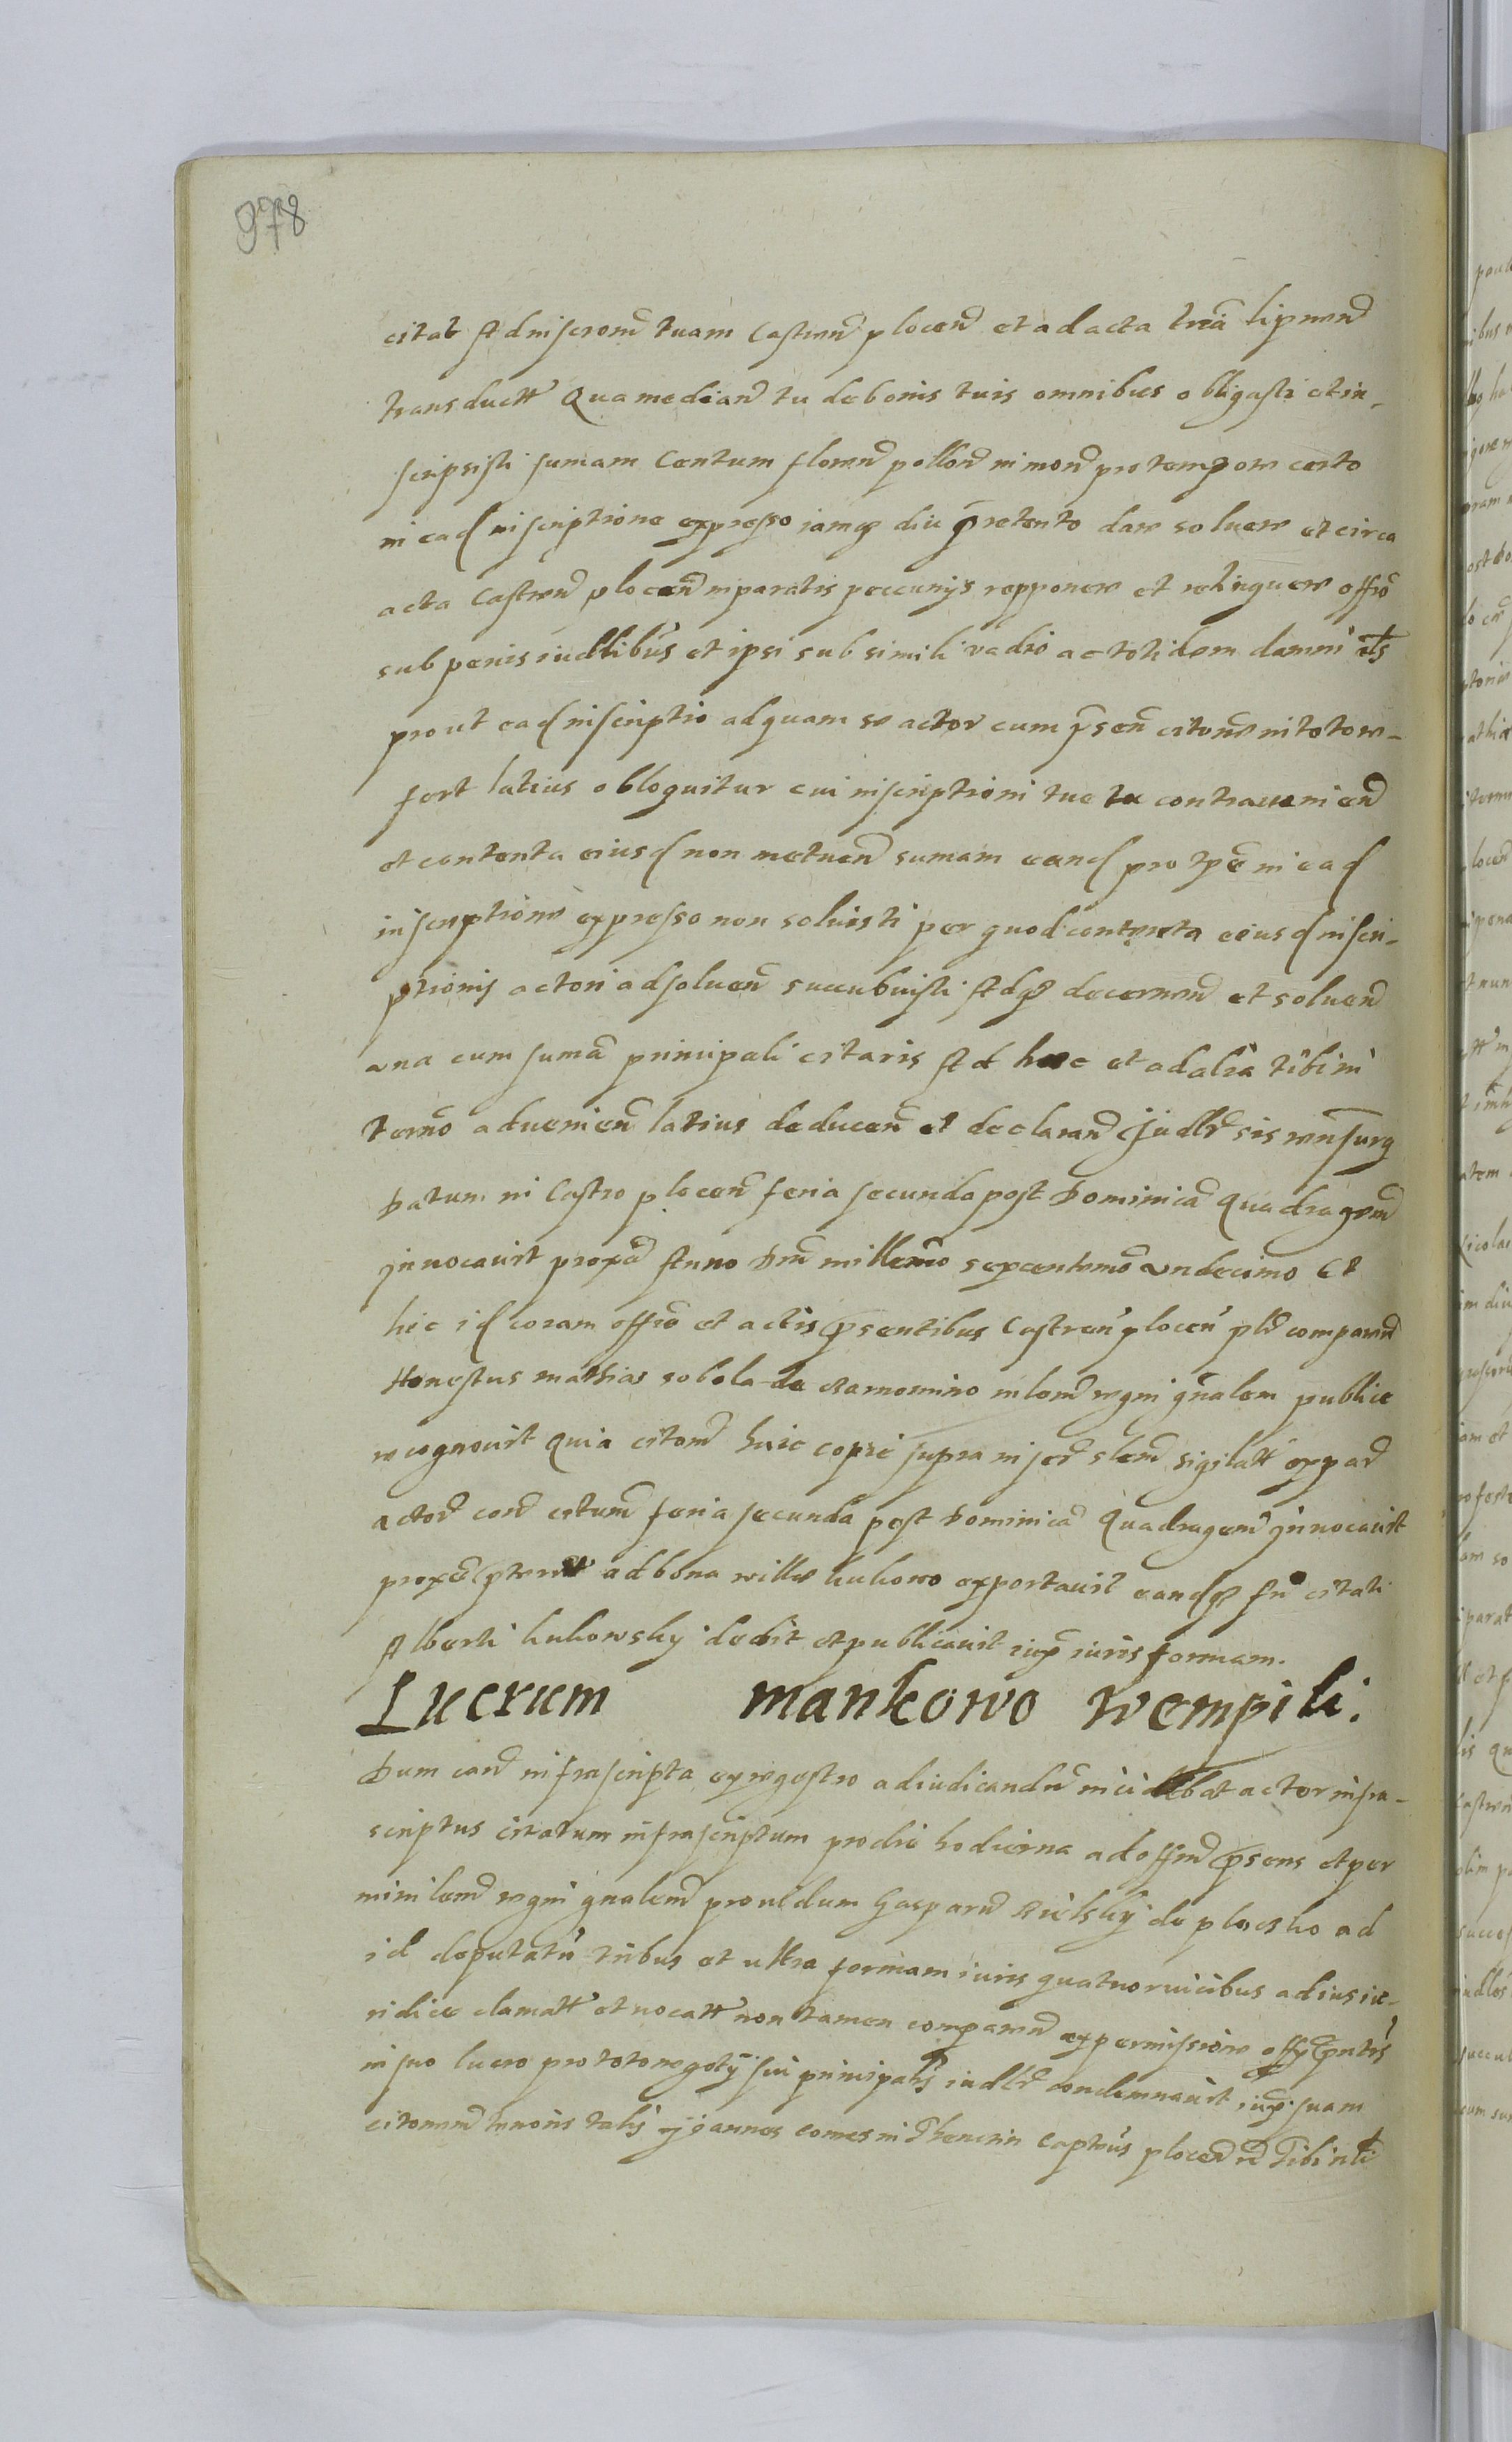 978
citat Ad inscronem tuam Castren plocen et ad acta tria lipnen
transductt Qua median tu de bonis tuis omnibus obligasti et in-
scripsisti sumam Centum floren pollon in mon pro tempore certo
in ead inscriptione expresso iamq diu preterito dare soluere et circa
acta Castren plocen in paratis peccunijs repponere et relinquere offro
sub penis iudlibus et ipsi sub simili vadio ac totidem damni
prout ead inscriptio ad quam se actor cum psen citone in toto re-
fert latius obloquitur cui inscriptioni tue tu contraueniend
et contenta eiusd non metuend sumam eand pro tpe in ead
inscriptione expresso non soluisti per quod contenta eiusd inscri-
ptionis actori ad soluen succubuisti Adq decernen et soluen
una cum suma principali citaris Ad hoec et ad alia tibi in
termo aduenien latius deducen et declaran Judlr sis rensurq
Datum in Castro plocen feria secunda post Dominica Quadragem
Juuocauit proxa Anno Dni millemo sexcentemo undecimo Et
hic id coram offio et actis psentibus Castren plocen plr comparen
Honestus mathias sobola de inlem regni gnalem publice
recognouit Quia citonem huic copie supra in sert slem sigilatt ex par
actor con citum feria secunda post Dominica Quadragem Juuocauit
proxe pterit ad bona ville kukowo exportauit eandq citati
Alberti kukowsky dedit et publicauit iuxa iuris formam.
Lucrum mankowo wempili.
Dum can infrascripta ex regestro adiudicandum incidebat actor infra-
scriptus citatum infrascriptum pro die hodierna ad offm psens et per
minilem regni gnalem prouidum Gasparem de plocsko ad
id deputatu tribus et ultra formam iuris quatuor vicibus ad ius iu-
ridice clamatt et vocatt non tamen comparen ex permissione offy pntis
in suo lucro pro toto negoty sui principalis iudlr condemnauit iuxa suam
citonem tenoris talis Joannes comes in Thencin Captneus plocen Tibi